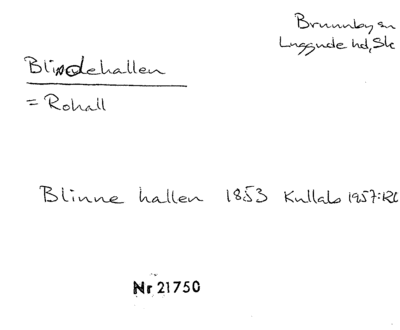 Brunnby sn
Luggude hd, Sk
Blindehallen
= Rohall
Blinne hallen 1853 Kullabs 1957:
Nr 21750